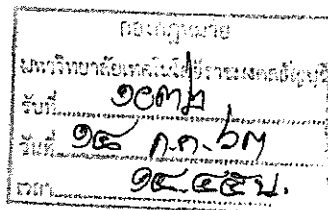 กองกฎหมาย
มหาวิทยาลัยเทคโนโลยีราชมงคลธัญบุรี
รับที่ ๑๐๓๒
วันที่ ๑๔ ก.ค. ๖๓
เวลา ๑๔.๔๕ น.